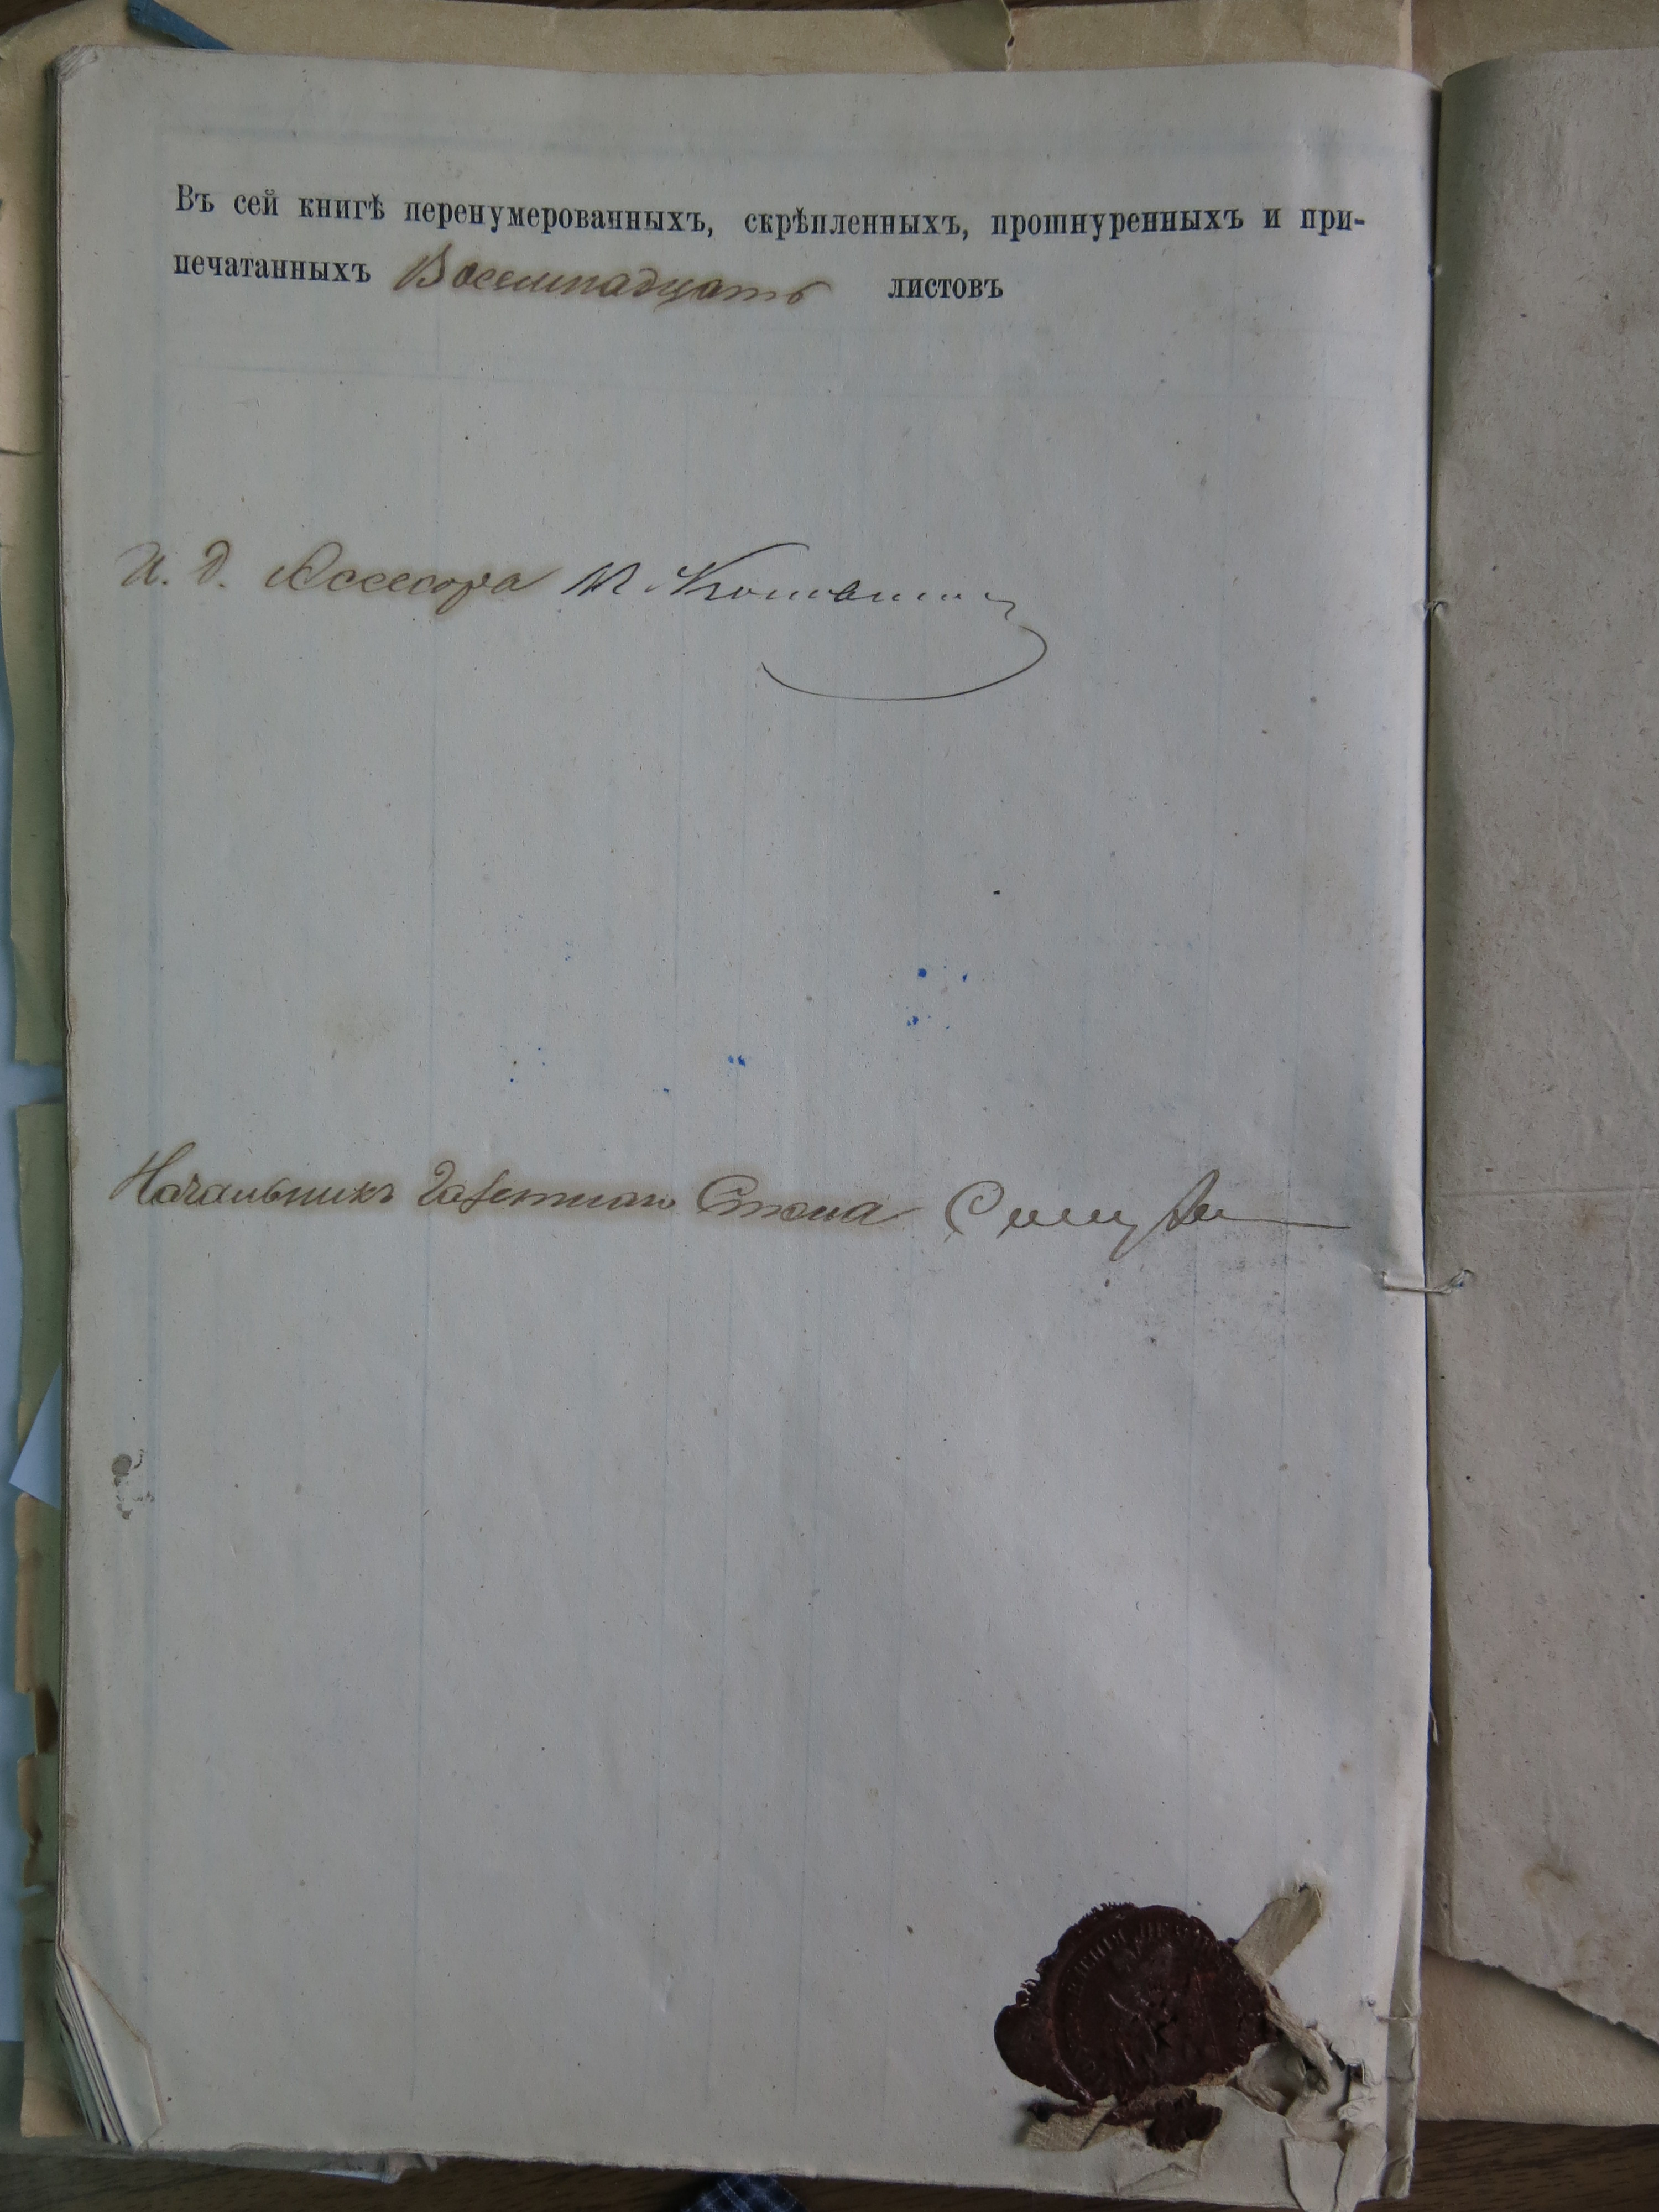 Въ сей книгѣ перенумерованныхъ, скрѣпленныхъ, прошнуренныхъ и при-
печатанныхъ Восемнадцать листовъ
И. д. Ассесора
Начальникъ Газетнаго Стола